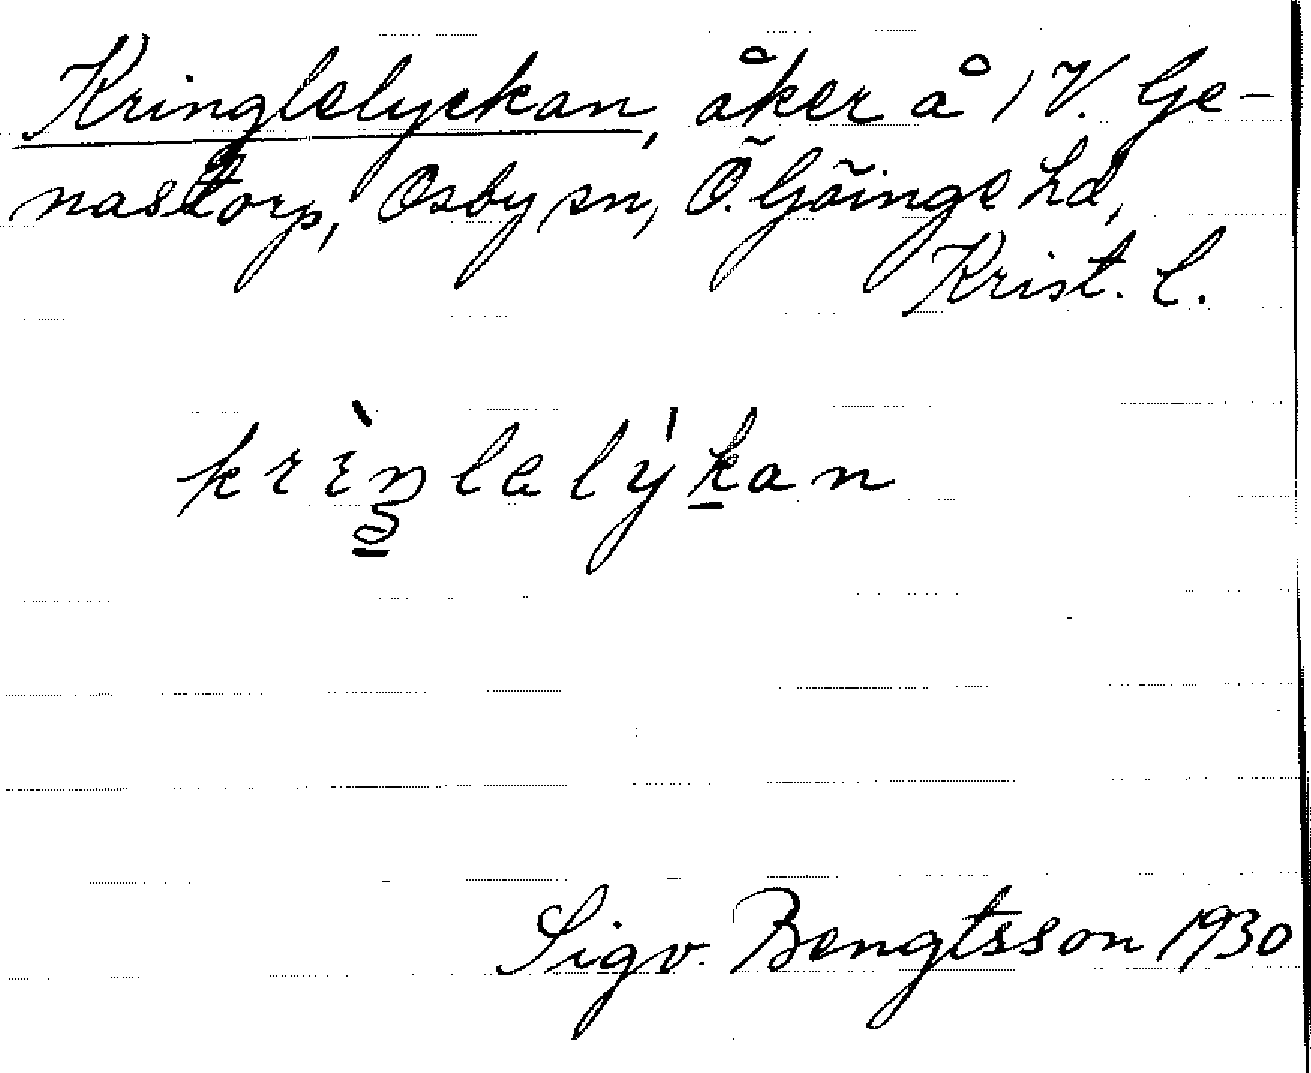 Kringlelyckan, åker å 1 V. Ge-
nastorp, Osby sn, Ö. Göinge hd,
Krist. l.
krìŋlalýkan
Sigv. Bengtsson 1930